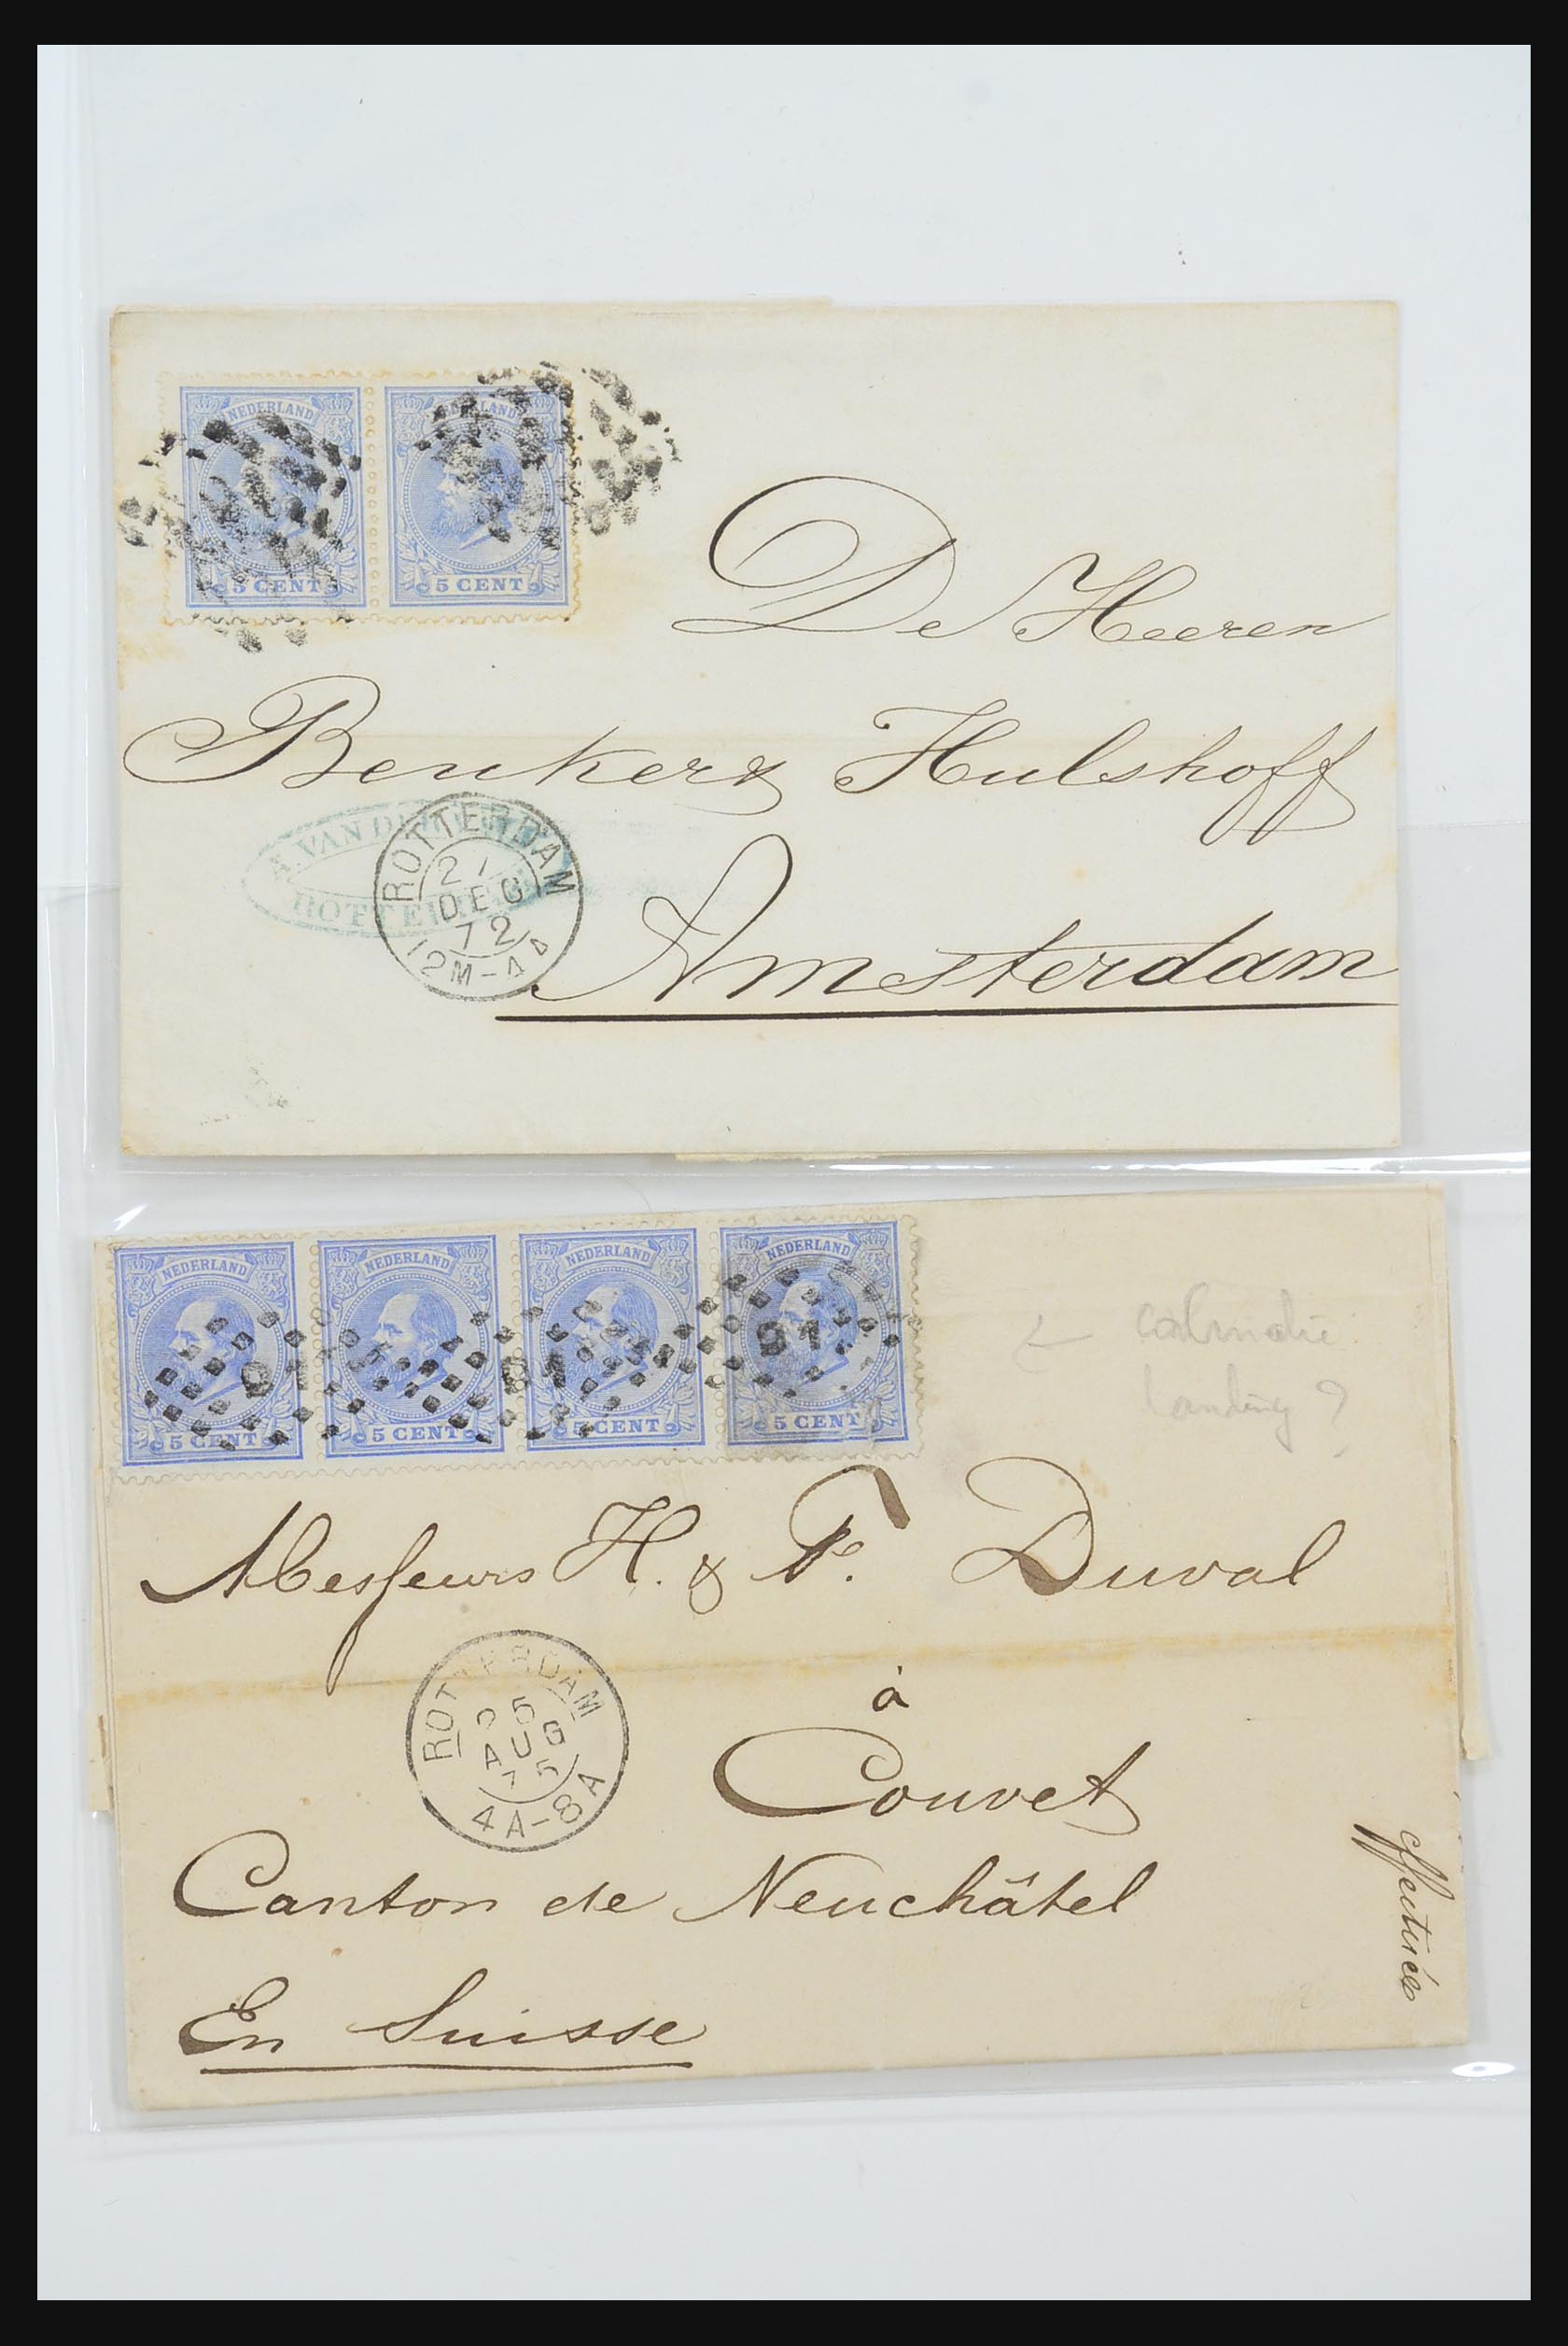 NEDERLAND
5 CENT
5 CENT
De Heeren
Beuker & Hulshoff
A. VAN
ROTTERDAM
21
DEC
72
12M-4A
Amsterdam
NEDERLAND NEDERLAND NEDERLAND NEDERLAND
91 91 91
5 CENT 5 CENT 5 CENT 5 CENT
landing?
Messieurs H. & Duval
ROTTERDAM
25
AUG
75
4A-8A
à
Couvet
Canton de Neuchâtel
En Suisse